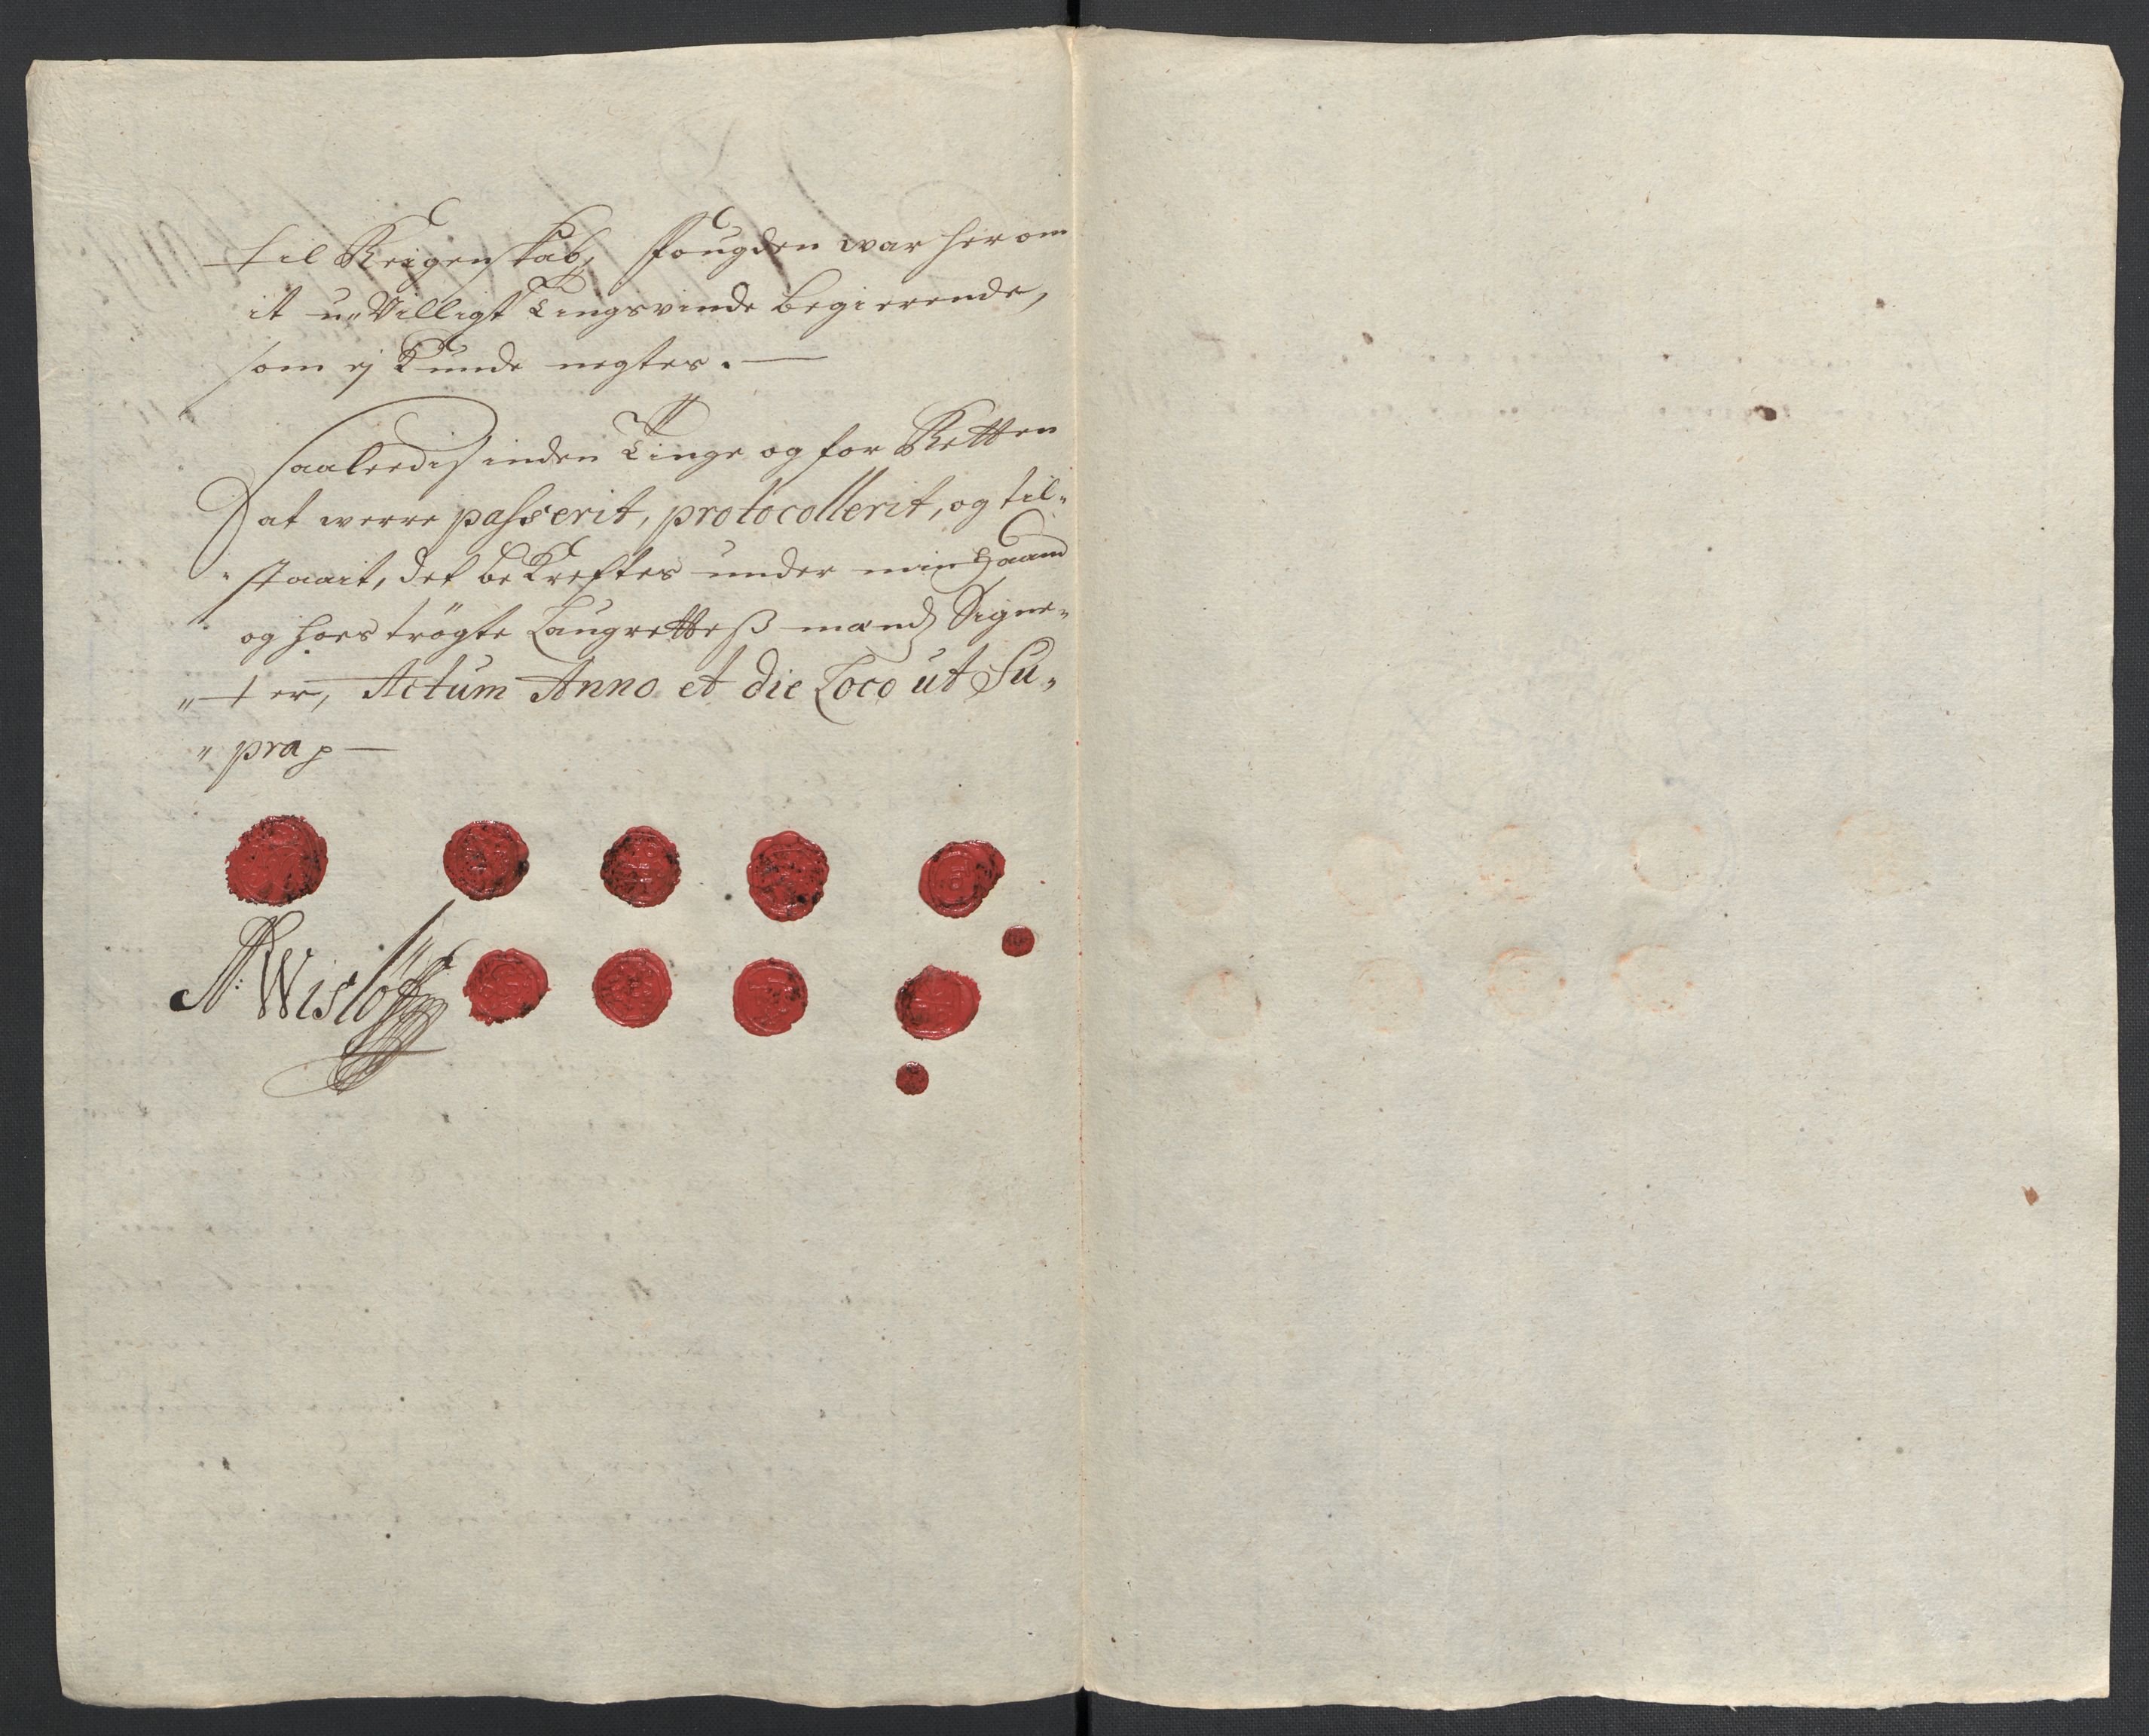 til Reigenskab, fougden war her om
it u„Villigt Tingsvinde begierende,
som ej Kunde negtes. —
Saaleedis inden Tinge og for Retten
at werre passerit, protocollerit, og til„
„staait, det beKreftes under min Haand
og hoes trögte Laugretteß mænds Signe„
„ter, Actum Anno et die Loco ut Su„
„pra p —
A: Wislöff